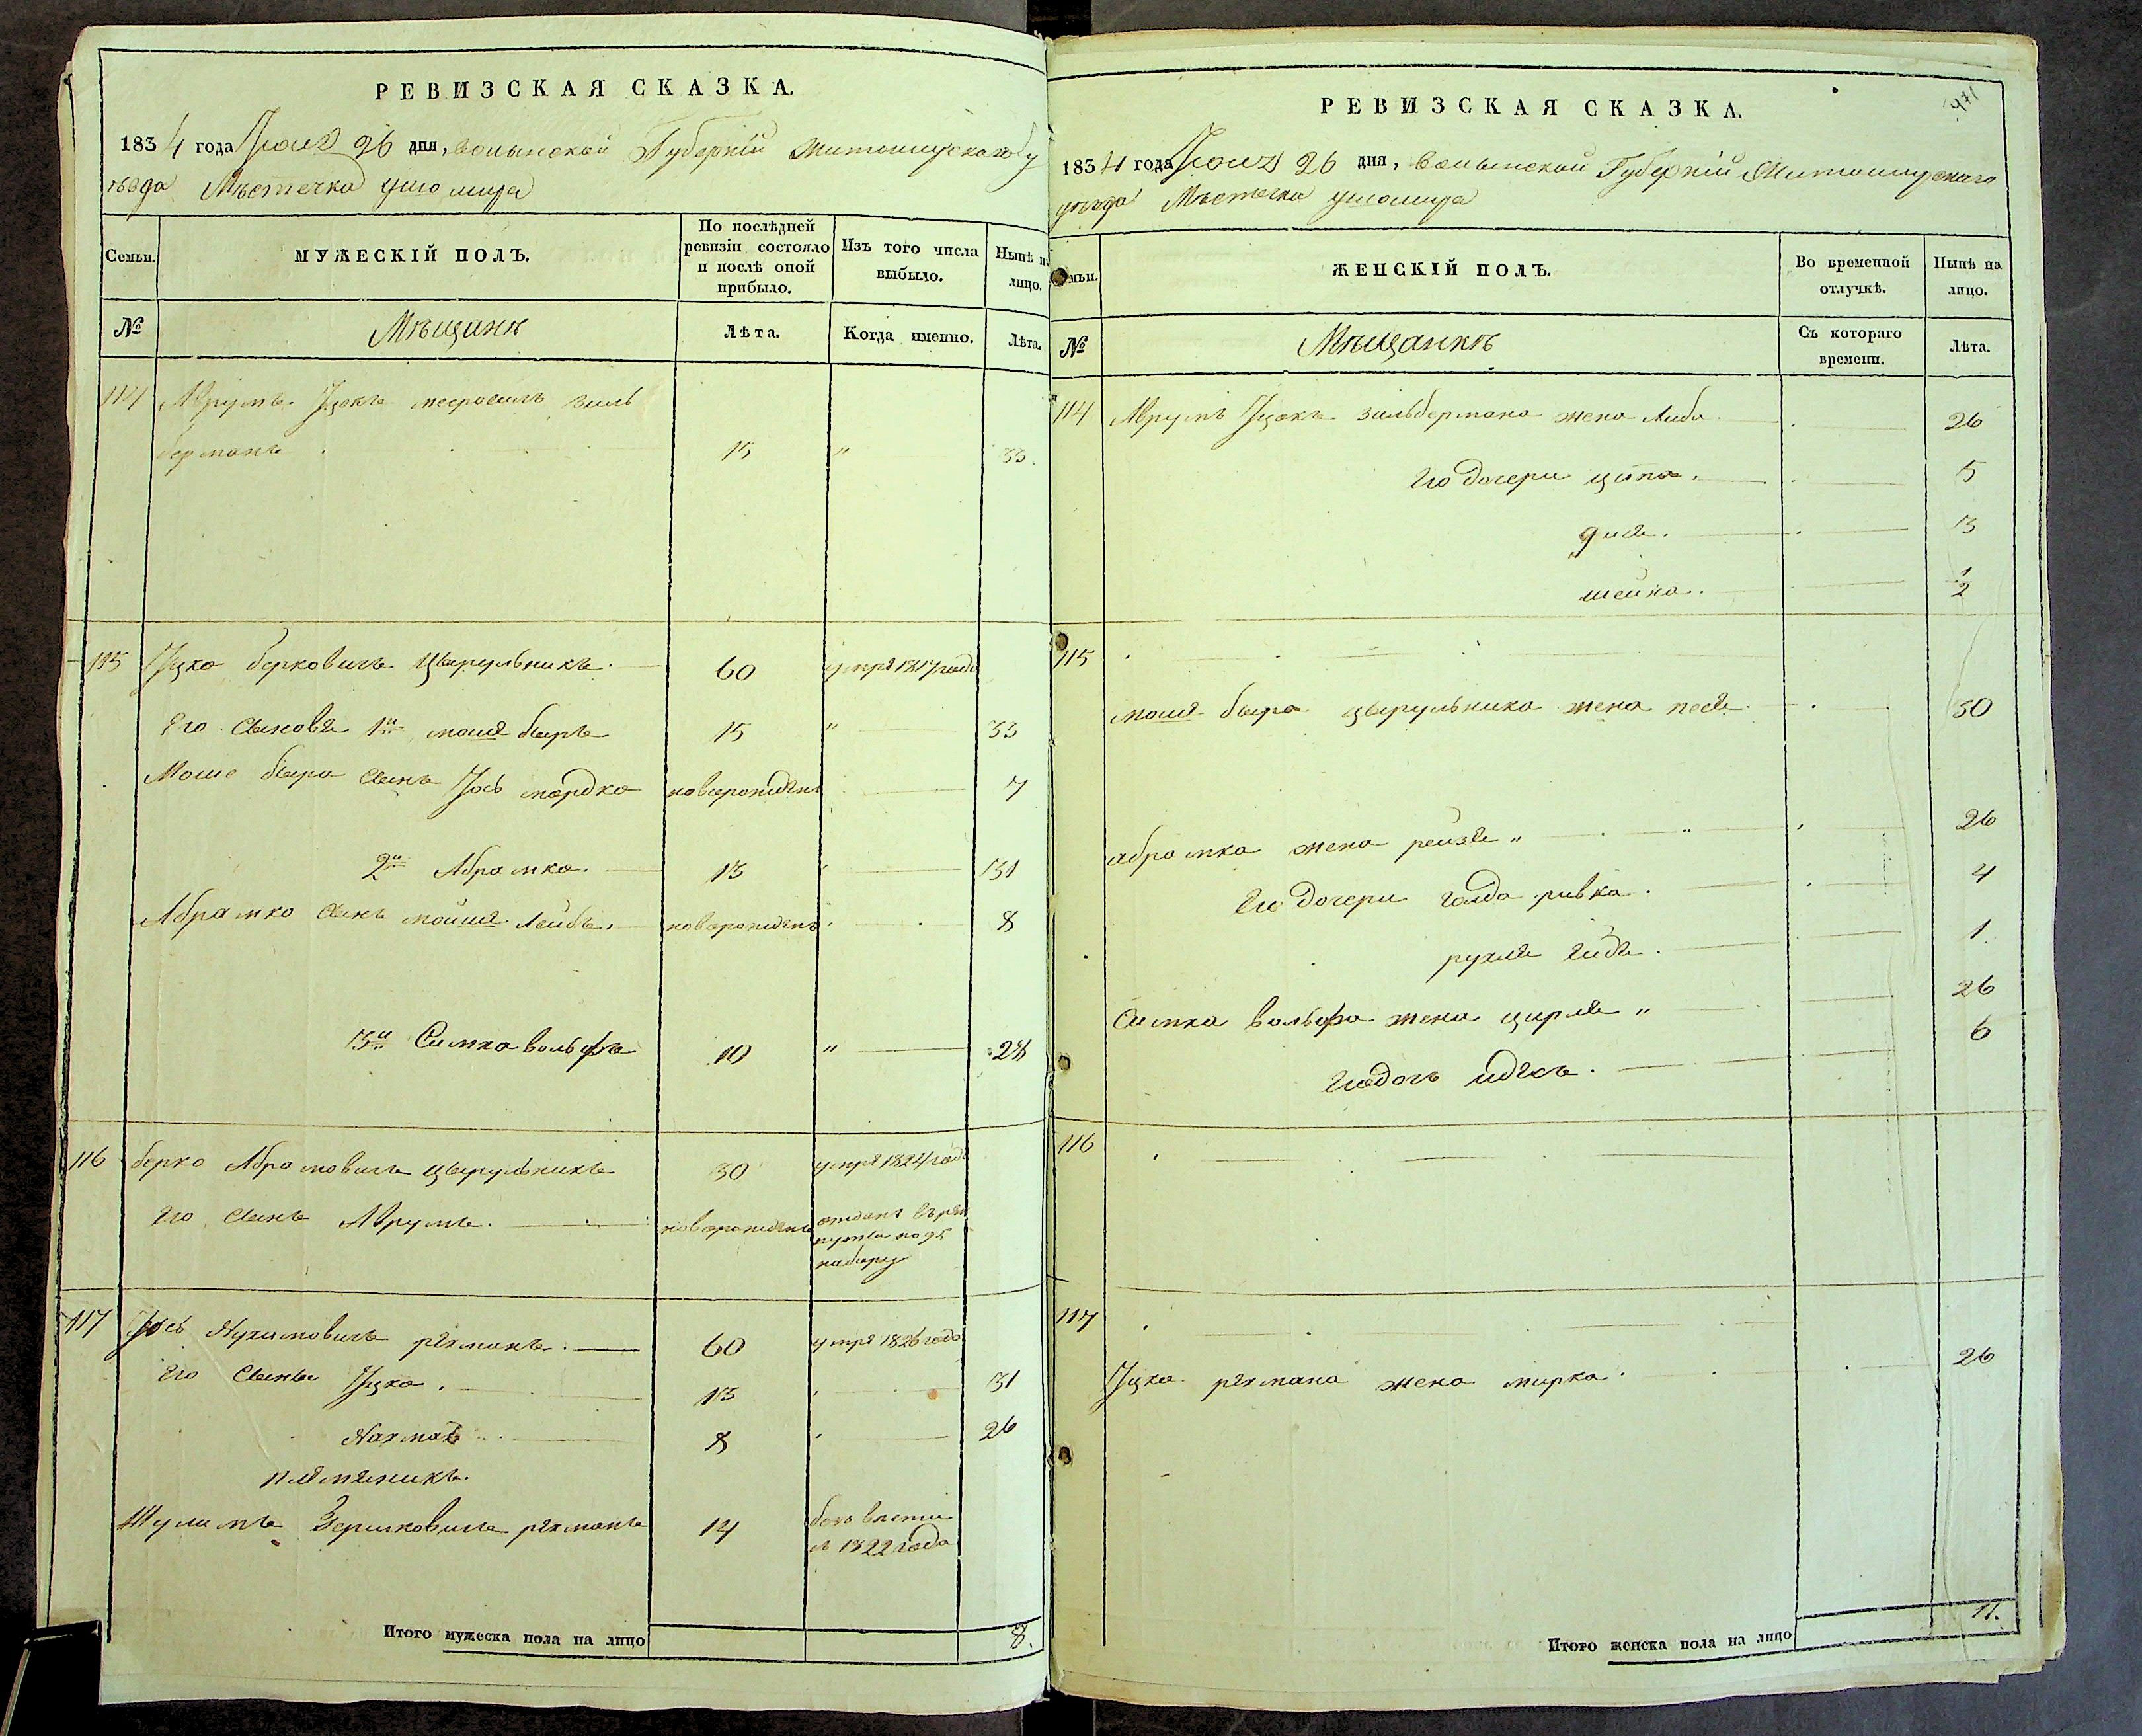 РЕВИЗСКАЯ СКАЗКА.
1834 года Июня 26 дня, волынской Губерніи Житомирскаго у
ѣзда Мѣстечка Ушомира
Семьи.
МУЖЕСКІЙ ПОЛЪ.
По послѣдней ревизіи состояло и послѣ оной прибыло.
Изъ того числа выбыло.
Нынѣ на лицо.
№
Мѣщанѣ
Лѣта.
Когда именно.
Лѣта.
114 Аврумъ Ицокъ зиль
берманъ 15 " 33
115 Ицко берковичъ цырульникъ 60 умре 1817 года
Его Сыновя 1й мошя беръ 15 " 33
Моше бера Сынъ Іось мордко новорожденъ 7
2й Абрамко. 13 31
Абрамко Сынъ мойше Лейбъ новорожденъ 8
3й Симха вольфъ 10 " 28
116 берко Абрамовичъ цырульникъ 30 умре 1824 года
Его Сынъ Аврумъ. новорожденъ отданъ въ рек
наборъ
117 Іось Нухимовичъ рехманъ 60 умре 1826 года
Его Сыны Ицко. 13 31
Нахманъ 8 26
племяникъ.
Шулимъ Зерпковичъ рехманъ 14 безъ вѣсти
с 1822 года
Итого мужеска пола на лицо 8.
471
РЕВИЗСКАЯ СКАЗКА.
1834 года Июня 26 дня, волынской Губерніи Житомирскаго
уѣзда Мѣстечка Ушомира
Семьи.
ЖЕНСКІЙ ПОЛЪ.
Во временной отлучкѣ.
Нынѣ на лицо.
№
Мѣщанкѣ
Съ котораго времени.
Лѣта.
114 Аврумъ Ицокъ зильбермана жена Либа 26
Его дочери ципа. 5
дися. 3
шейна. 1/2
115
мошя бера цырульника жена песя 30
абрамка жена рейзя " 26
Его дочери голда ривка. 4
рухля 1
Симха вольфа жена цирля " 26
Его дочь идесъ. 6
116
117
Ицка рехмана жена мирка. 26
Итого женска пола на лицо 11.